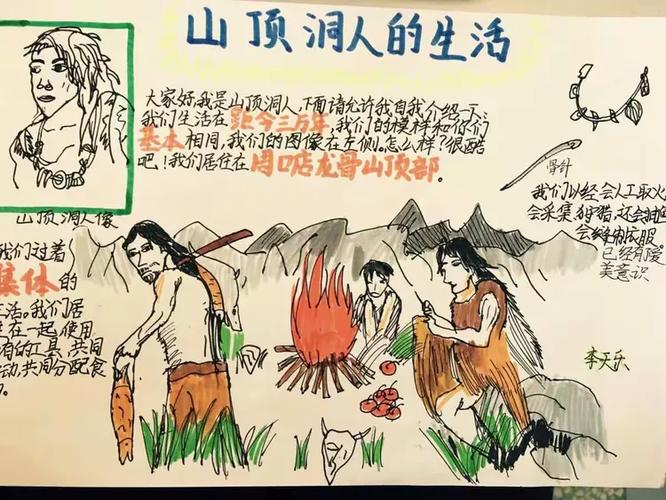 山顶洞人的生活
大家好,我是山顶洞人,下面请允许我自我介绍一下。
我们生活在距今三万年,我们的模样和你们
基本相同,我们的图像在左侧,怎么样?很酷
吧!我们居住在周口店龙骨山顶部。
山顶洞人像
我们过着
集体的
生活。我们居
在一起,使用
的工具,共同
动,共同分配食
骨针
我们以经会人工取火
会采集 狩猎,还会
会缝制衣服
已经有爱
美意识
李天乐